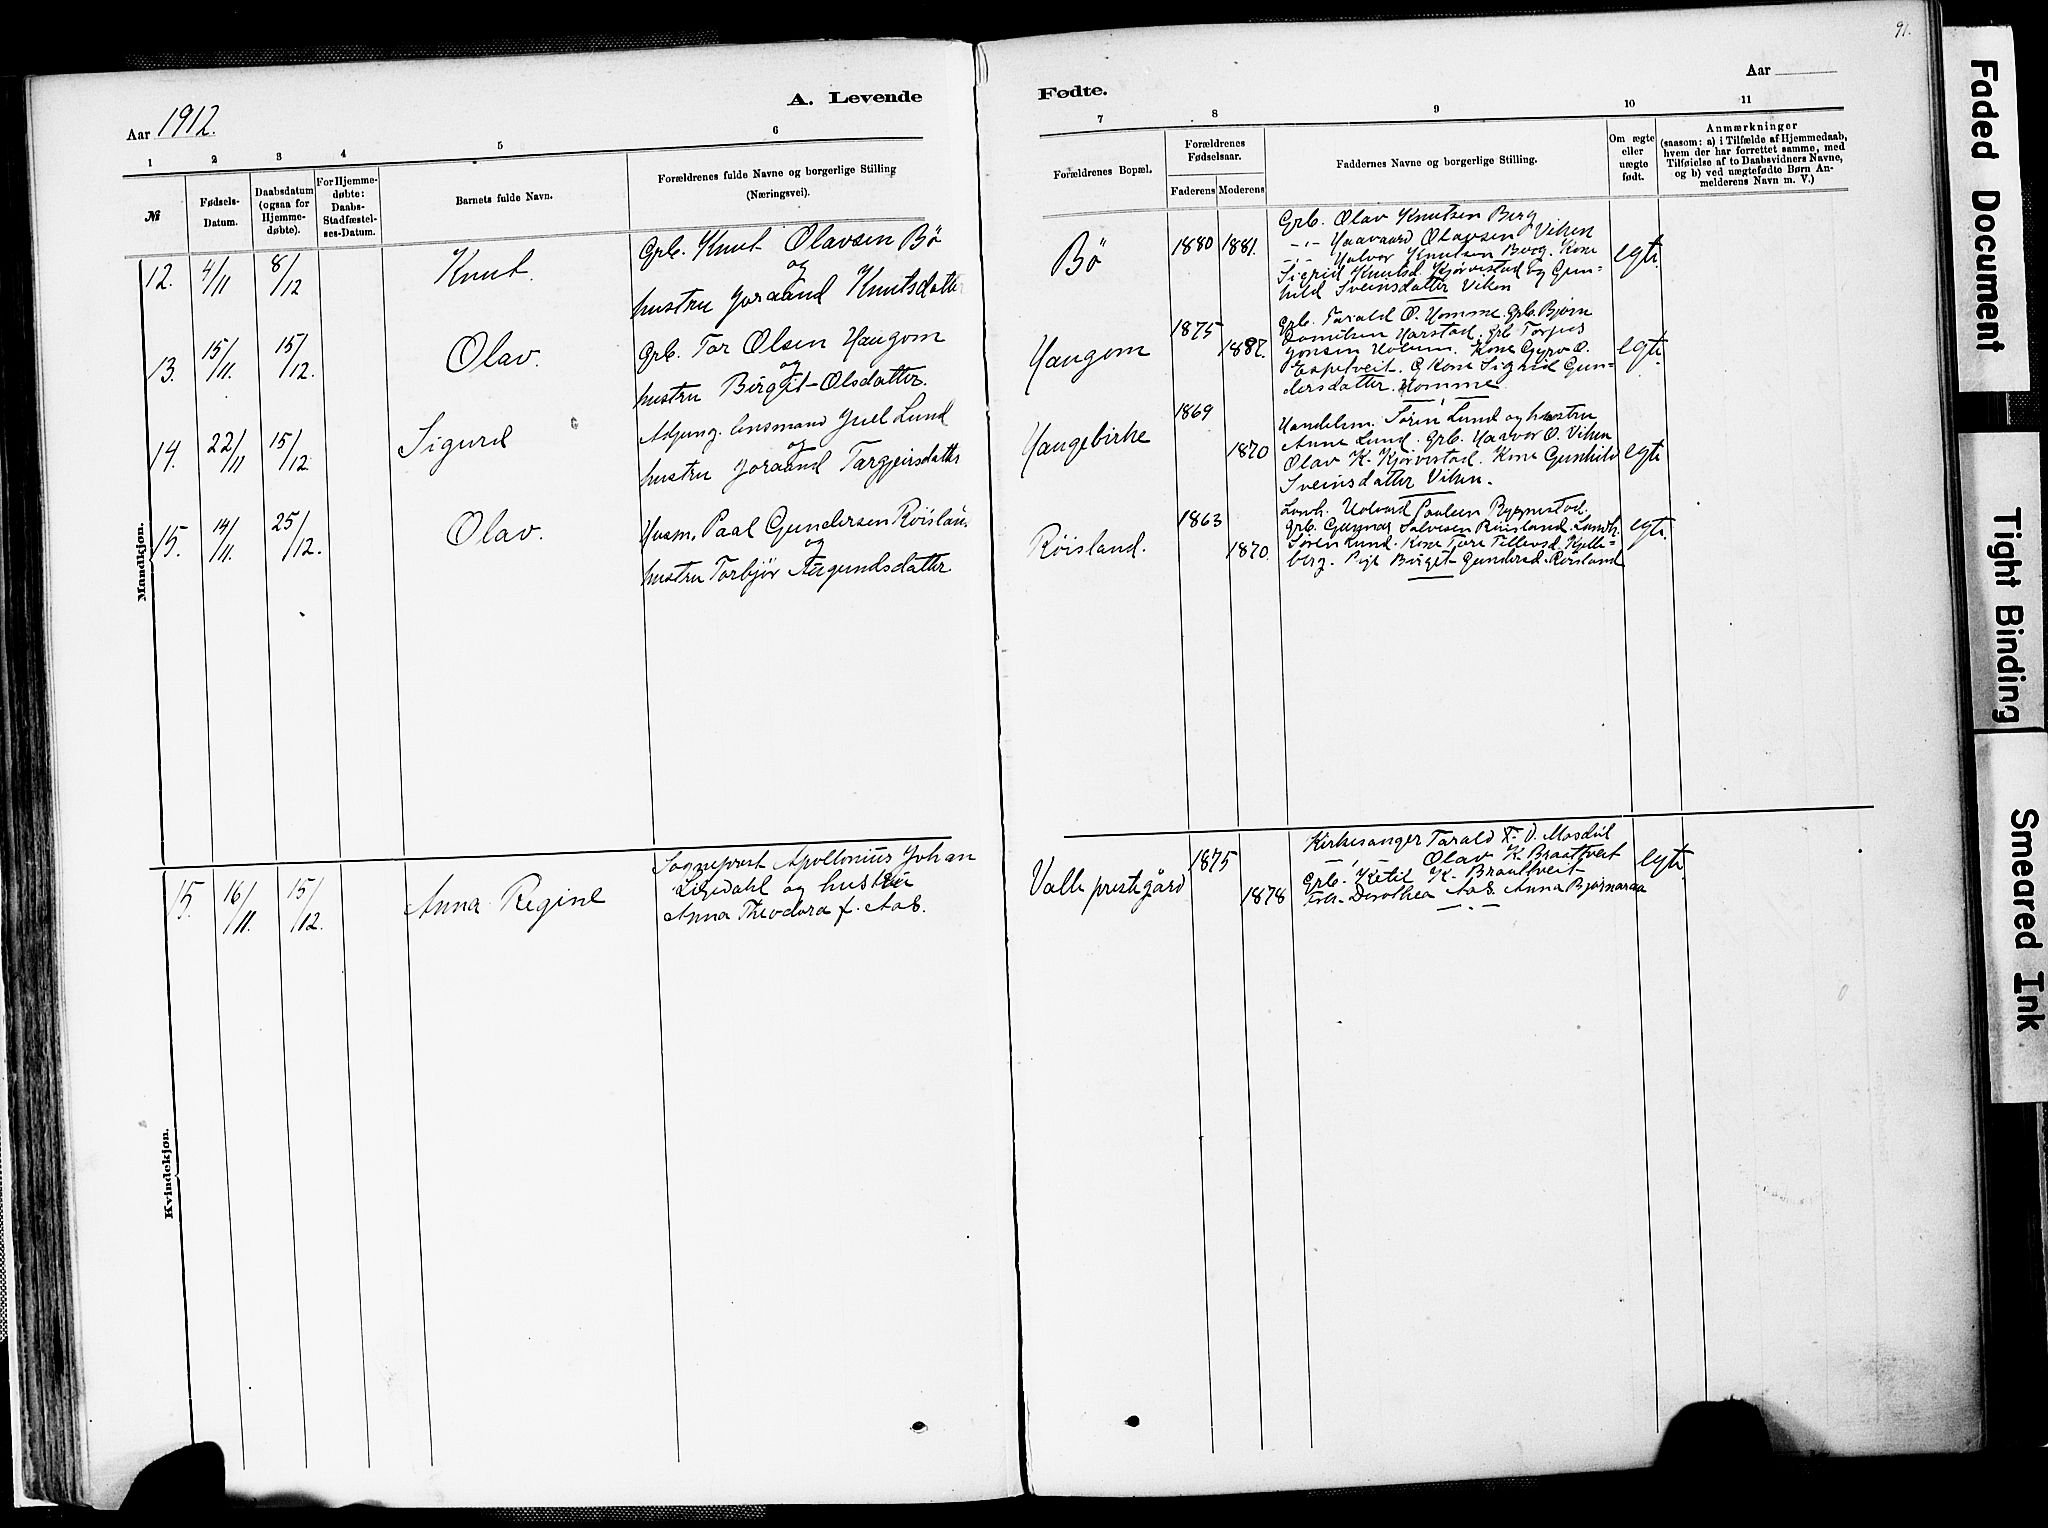 91.
Aar 1912.
A. Levende
Fødte.
Aar
1 2 3 4 5 6
7 8 9 10 11
№
Fødsels-
Datum.
Daabsdatum
(ogsaa for
Hjemme-
døbte).
For Hjemme-
døbte:
Daabs-
Stadfæstel-
ses-Datum.
Barnets fulde Navn.
Forældrenes fulde Navne og borgerlige Stilling
(Næringsvei).
Forældrenes Bopæl.
Forældrenes
Fødselsaar.
Faderens Moderens
Faddernes Navne og borgerlige Stilling.
Om ægte
eller
uægte
født.
Anmærkninger
(saasom: a) i Tilfælde af Hjemmedaab,
hvem der har forrettet samme, med
Tilføielse af to Daabsvidners Navne,
og b) ved uægtefødte Børn An-
melderens Navn m. V.)
Mandkjøn.
12. 4/11 8/12 Knut.
Grb. Knut Olavsen Bø
og
hustru Joraand Knutsdatter
Bø 1880 1881.
Grb. Olav Knutsen Berg
-"- Haavaard Olavsen Viken
-"- Halvor Knutsen Berg. Kone
Sigrid Knutsd. Kjørvestad og Gun-
hild Sveinsdatter Viken
egte.
13. 15/11. 15/12. Olav.
Grb. Tor Olsen Haugom
og
hustru Birgit Olsdatter.
Haugom 1875 1887.
Grb. Tarald O. Homme. Grb. Bjørn
Danielsen Harstad. grb Torjus
Jonsen Uolum. Kone Gyro O.
Espetveit. G Kone Sigrid Gun-
dersdatter. Homme
egte.
14. 22/11 15/12. Sigurd
Adjung. lensmand Juel Lund
og
hustru Joraand Targjeirsdatter
Haugebirke 1869 1870
Handelsm. Søren Lund og hustru
Anne Lund. Grb. Halvor O. Viken
Olav K. Kjørvestad. Kone Gunhild
Sveinsdatter Viken.
egte
15. 14/11. 25/12. Olav.
Husm. Paal Gundersen Røislan
og
hustru Torbjør Augundsdatter
Røisland. 1863 1870.
Landh. Halvard Paulsen Rygnestad.
grb. Gunnar Salvesen Røisland. Landh.
Søren Lund. Kone Tore Tellevsd. Kjelle-
berg. Pige Birget Gundersd. Røisland
egte.
Kvindekjøn.
15. 16/11. 15/12. Anna Regine
Sogneprest Apollonius Johan
Ligedahl og hustru
Anna Theodora f. Aas.
Valle prestegård 1875 1878
Kirkesanger Tarald T. D. Mosdøl
-"- Olav K. Braattveit
Grb. Ketil K. Braattveit
Frk. Dorothea Aas. Anna Bjørnaraa
egte.
Faded Document
Tight Binding
Smeared Ink